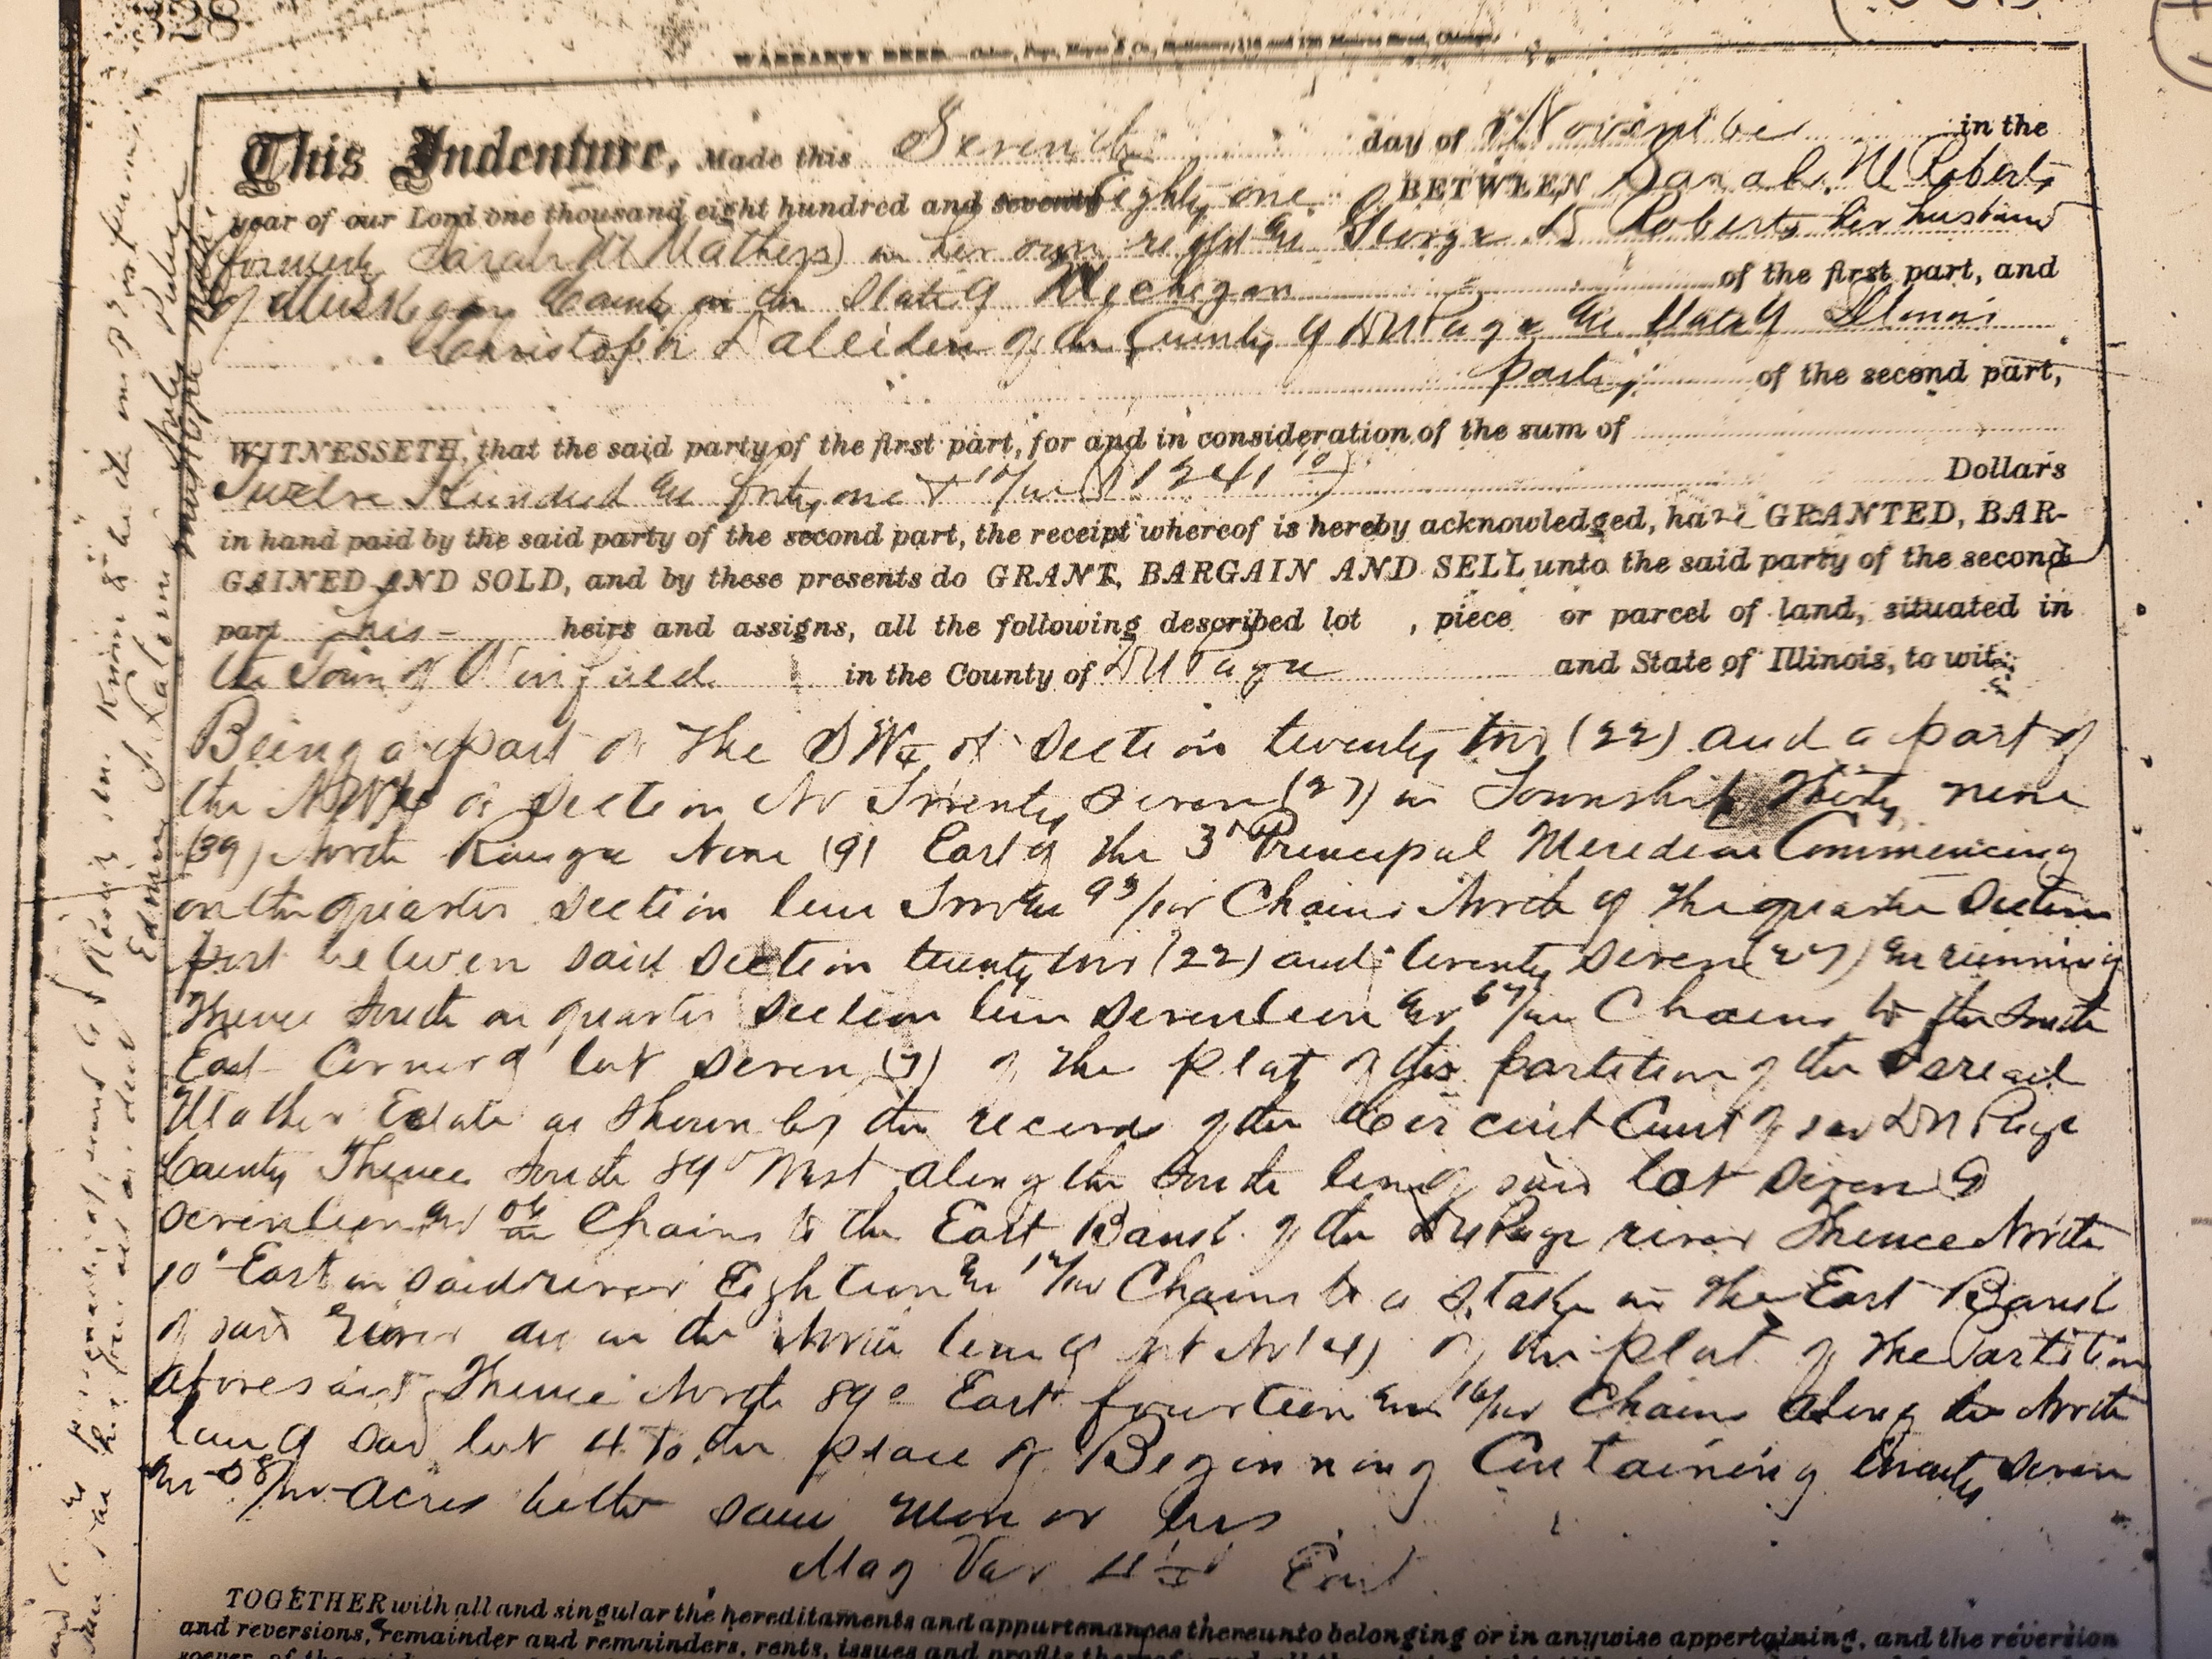 328
WARRANTY DEED.
This Indenture, Made this Seventh day of November in the
year of our Lord one thousand eight hundred and seventy Eighty one BETWEEN Sarah M Roberts
(formerly Sarah M Mather) in her own right and George Roberts her husband
of Muskegon County in the State of Michigan of the first part, and
Christoph Dalleiden of the County of DuPage and State of Illinois
party of the second part,
WITNESSETH, that the said party of the first part, for and in consideration of the sum of
Twelve Hundred and forty one & 10/100 ($1241 10) Dollars
in hand paid by the said party of the second part, the receipt whereof is hereby acknowledged, have GRANTED, BAR-
GAINED AND SOLD, and by these presents do GRANT, BARGAIN AND SELL unto the said party of the second
part his heirs and assigns, all the following described lot , piece or parcel of land, situated in
the Town of Winfield in the County of DuPage and State of Illinois, to wit:
Being a part of the SW¼ of Section twenty two (22) and a part of
the NW¼ of Section No Twenty seven (27) in Township Thirty nine
(39) North Range Nine (9) East of the 3d Principal Meridian Commencing
on the quarter Section line Two and 93/100 Chains North of the quarter Section
post between said Section twenty two (22) and twenty seven (27) and running
thence South on quarter Section line seventeen and 67/100 Chains to the South
East Corner of lot seven (7) of the plat of the partition of the
Mather Estate as shown by the records of the Circuit Court of said DuPage
County Thence South 89° West along the South line of said lot seven (7)
seventeen and 04/100 Chains to the East Bank of the DuPage river Thence North
10° East in said river Eighteen and /100 Chains to a stake on the East Bank
of said River and in the North line of lot No (4) of the plat of the Partition
aforesaid Thence North 89° East fourteen and 16/100 Chains along the North
line of said lot 4 to the place of Beginning Containing twenty seven
and 58/100 acres be the same more or less
Mag Var 4 East
TOGETHER with all and singular the hereditaments and appurtenances thereunto belonging or in anywise appertaining, and the reversion
and reversions, remainder and remainders, rents, issues and profits thereof,